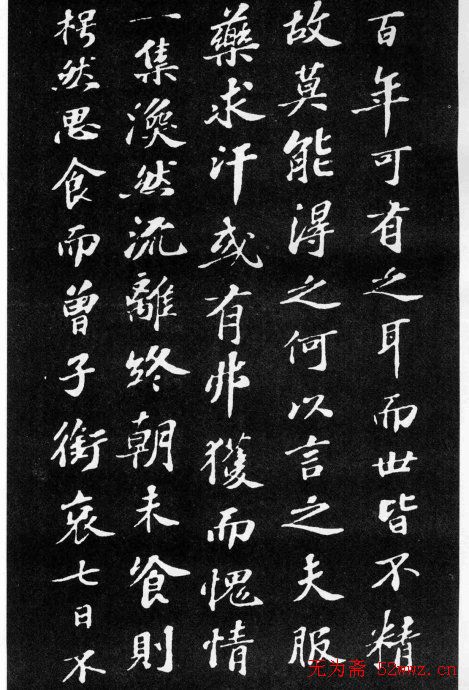 百年可有之耳而世皆不精
故莫能得之何以言之夫服
藥求汗或有弗獲而愧情
一集渙然流離終朝未飡則
枵然思食而曾子銜哀七日不
无为斋 52wwz.cn